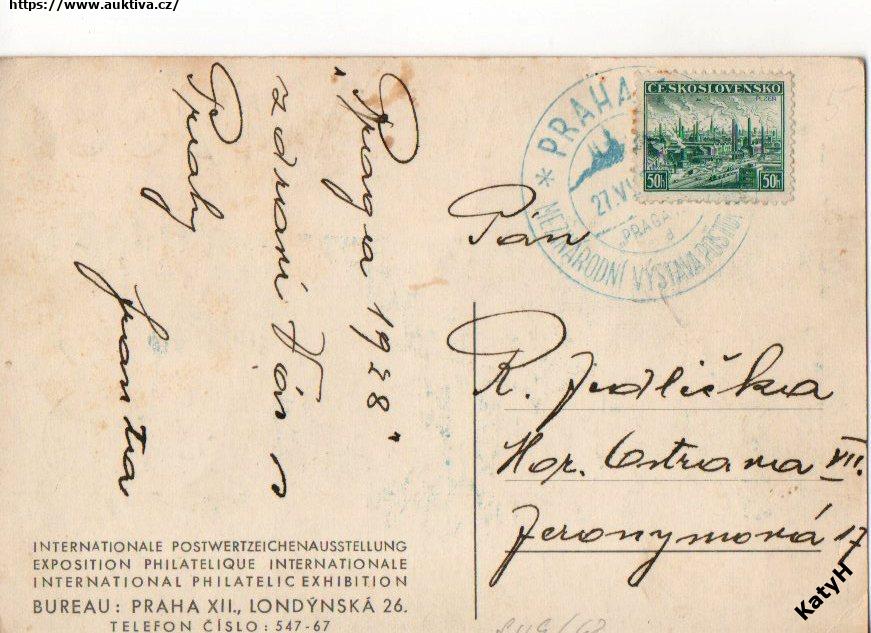 https://www.auktiva.cz/
"Praga 1938"
zdraví Vás s
Prahy
Pan
R. Jedlička
Mor. Ostrava VII.
Jeronymová 17
ČESKOSLOVENSKO
PLZEŇ
50h 50h
* PRAHA
27.VI
"PRAGA
d
MEZINÁRODNÍ VÝSTAVA POŠT
INTERNATIONALE POSTWERTZEICHENAUSSTELLUNG
EXPOSITION PHILATELIQUE INTERNATIONALE
INTERNATIONAL PHILATELIC EXHIBITION
BUREAU: PRAHA XII., LONDÝNSKÁ 26.
TELEFON ČÍSLO: 547-67
KatyH